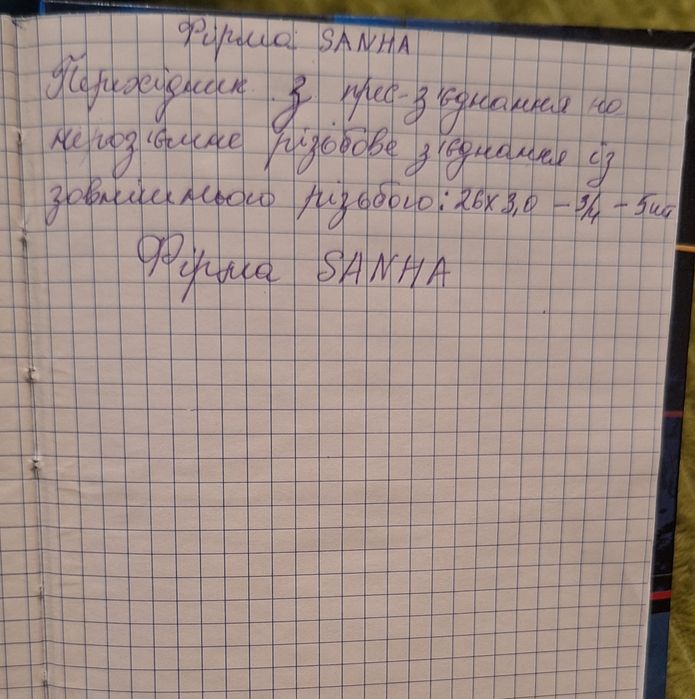 Фірма SANHA
Перехідник з прес-з'єднання на
нероз'ємне різьбове з'єднання із
зовнішнього різьбою: 26х3,0 - 3/4 - 5шт
Фірма SANHA